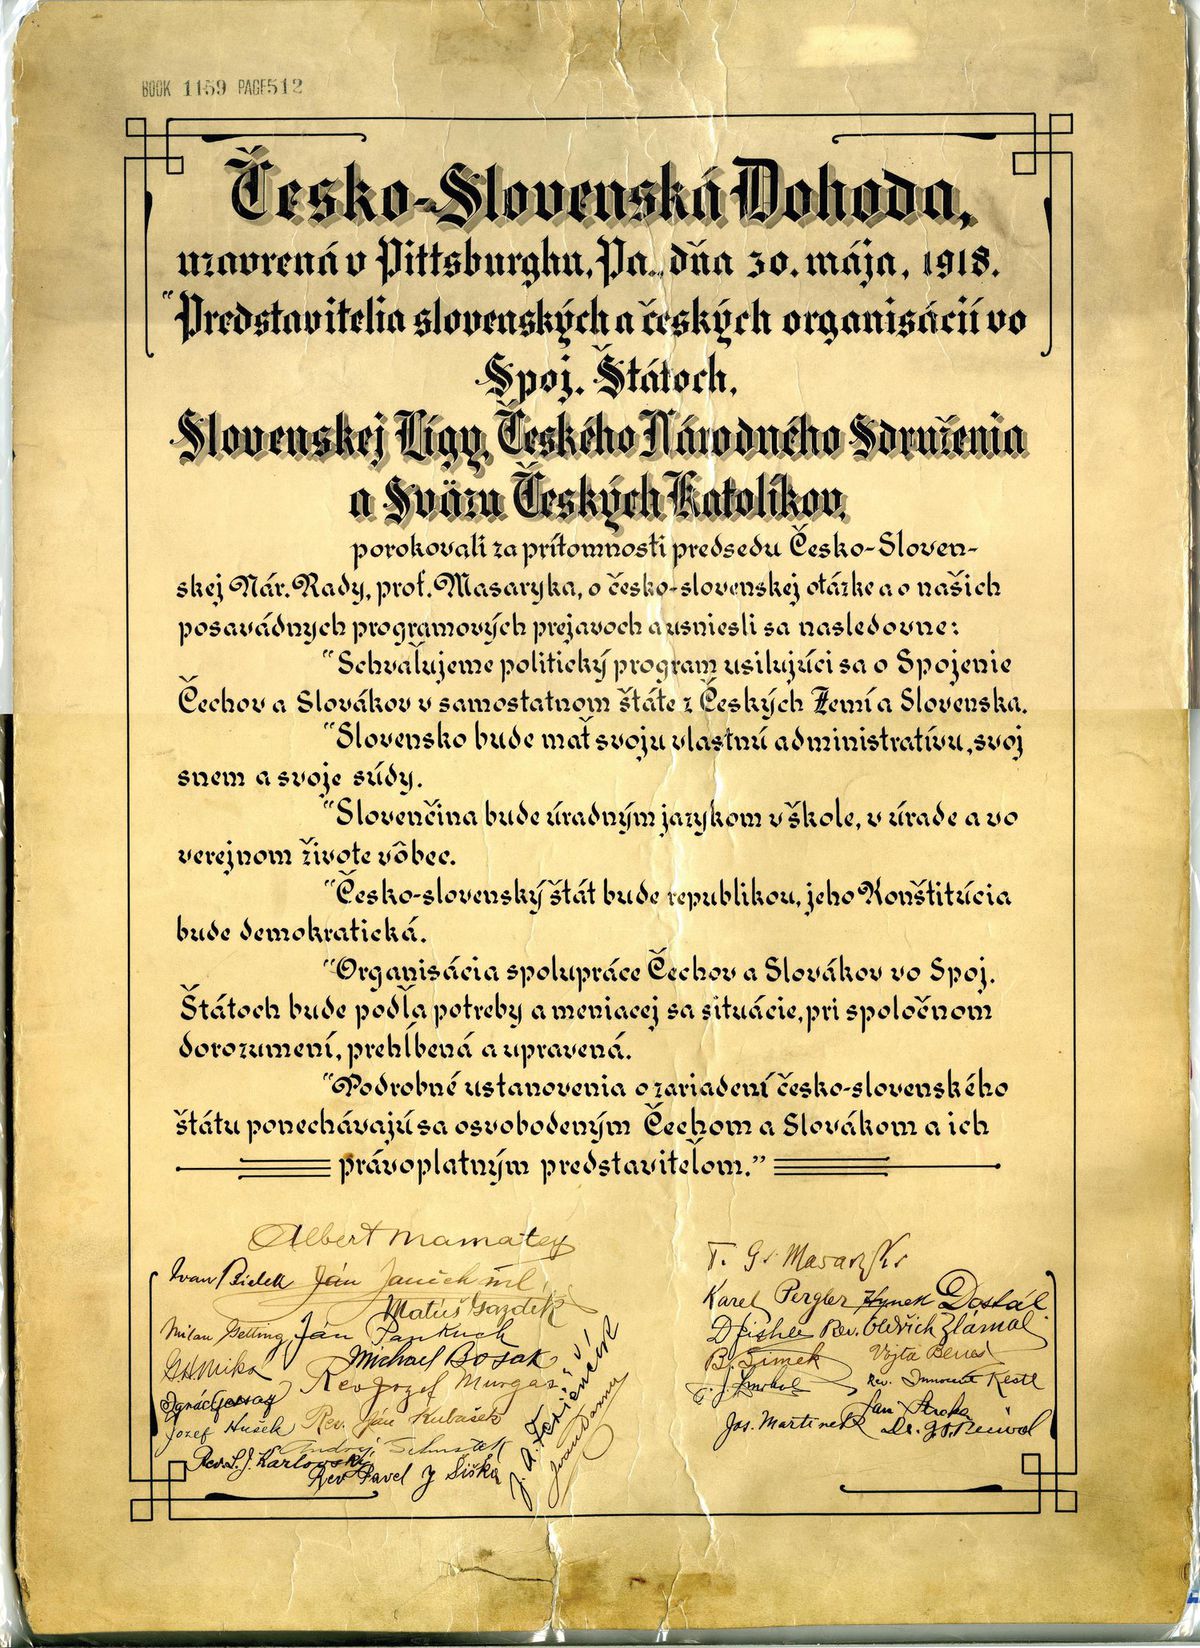 BOOK 1159 PAGE512
Česko-Slovenská Dohoda,
uzavrená v Pittsburghu, Pa., dňa 30. mája, 1918.
"Predstavitelia slovenských a českých organisácií vo
Spoj. Štátoch,
Slovenskej Lígy, Českého Národného Sdruženia
a Sväzu Českých Katolíkov,
porokovali za prítomnosti predsedu Česko-Sloven-
skej Nár. Rady, prof. Masaryka, o česko-slovenskej otázke a o našich
posavádnych programových prejavoch a usniesli sa nasledovne:
"Schvaľujeme politický program usilujúci sa o Spojenie
Čechov a Slovákov v samostatnom štáte z Českých Zemí a Slovenska.
"Slovensko bude mať svoju vlastnú administratívu, svoj
snem a svoje súdy.
"Slovenčina bude úradným jazykom v škole, v úrade a vo
verejnom živote vôbec.
"Česko-slovenský štát bude republikou, jeho Konštitúcia
bude demokratická.
"Organisácia spolupráce Čechov a Slovákov vo Spoj.
Štátoch bude podľa potreby a meniacej sa situácie, pri spoločnom
dorozumení, prehĺbená a upravená.
"Podrobné ustanovenia o zariadení česko-slovenského
štátu ponechávajú sa osvobodeným Čechom a Slovákom a ich
právoplatným predstaviteľom."
Albert Mamatey
Ivan Bielek Ján Janček ml
Matúš Gazdík
Milan Getting, Ján Pankuch
Michael Bosak
Rev Jozef Murgaš
Jozef Hušek Rev. Ján Kubašek
Rev. L. J. Karlovský
Rev Pavel J Šiška
Ivan Daxner
T. G. Masaryk
Karel Pergler Hynek Dostál
Rev. Oldřich Zlámal
B. Šimek Vojta Beneš
Rev. Innocent Kestl
Jos. Martinek